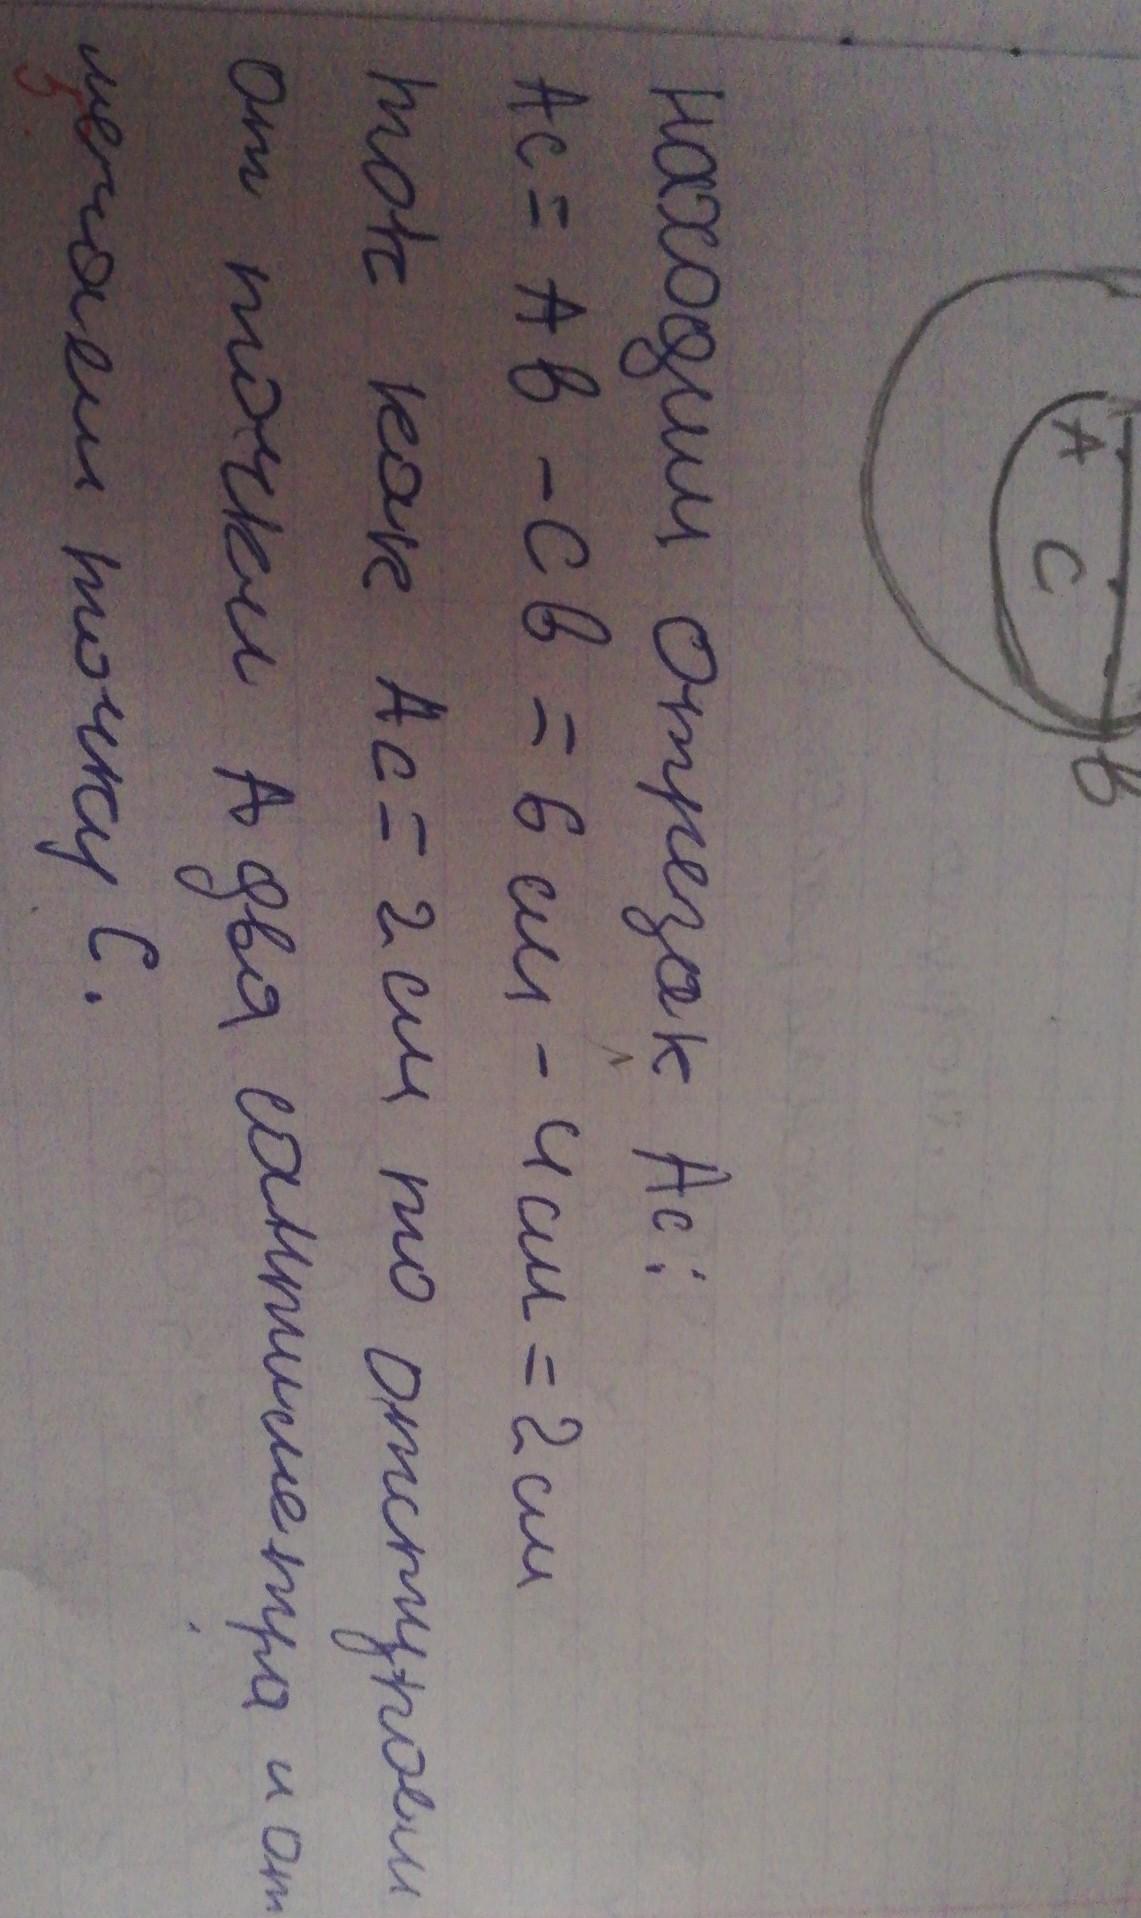 A C B
Находим отрезок Ac:
Ac = Aв - Cв = 6 см - 4 см = 2 см
так как Ac = 2 см то отступаем
от точки A два сантиметра и от
мечаем точку C.